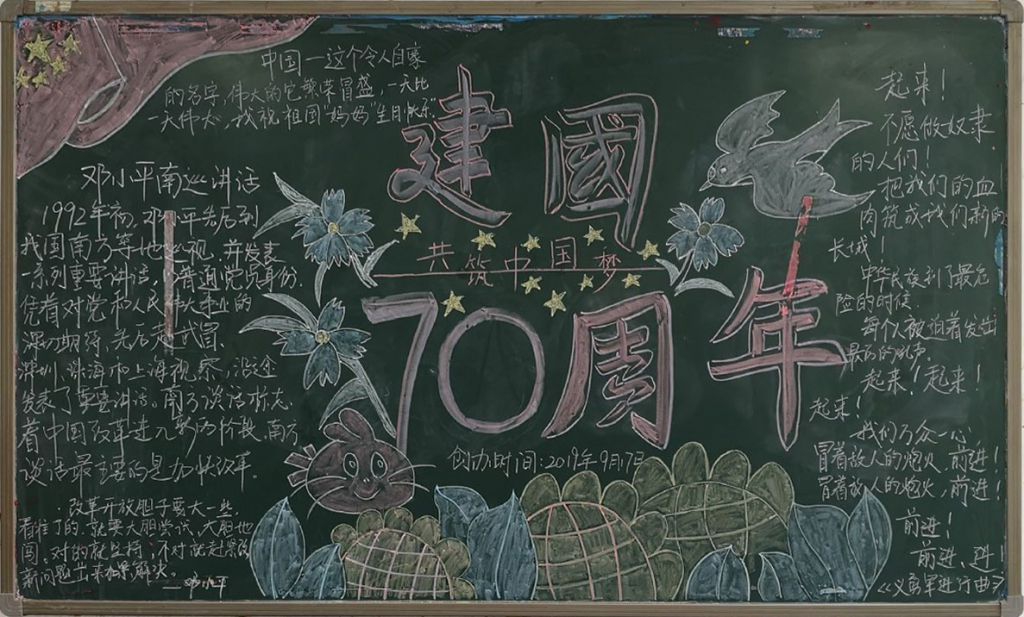 中国一这个令人自豪
的名字,伟大的它繁荣冒盛,一天比
一天伟大,我祝祖国妈妈"生日快乐"
建國
共筑中国梦
70周年
创办时间:2019年9月17日
邓小平南巡讲话
1992年初,邓小平先后到
我国南方等地巡视,并发表
一系列重要讲话,普通党员身份,
凭着对党和人民伟大事业的
深切期待,先后赴武昌、
深圳、珠海和上海视察,沿途
发表了重要讲话,南方谈话标志
着中国改革进入新的阶段,南方
谈话最主要的是加快改革。
改革开放胆子要大一些
看准了的,就要大胆尝试,大胆地
闯,对的就坚持,不对就赶紧改
新问题出来加紧解决。
—邓小平
起来!
不愿做奴隶
的人们!
把我们的血
肉筑成我们新的
长城!
中华民族到了最危
险的时候
每个人被迫着发出
最后的吼声。
起来!起来!
起来!
我们万众一心
冒着敌人的炮火,前进!
冒着敌人的炮火,前进!
前进!
前进、进!
《义勇军进行曲》